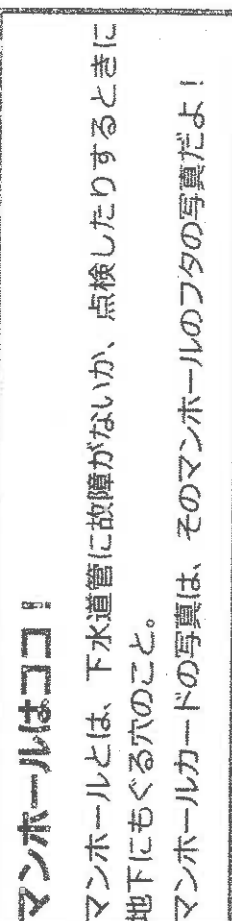 マンホールはココ！
マンホールとは、下水道管に故障がないか、点検したりするときに
地下にもぐる穴のこと。
マンホールカードの写真は、そのマンホールのフタの写真だよ！